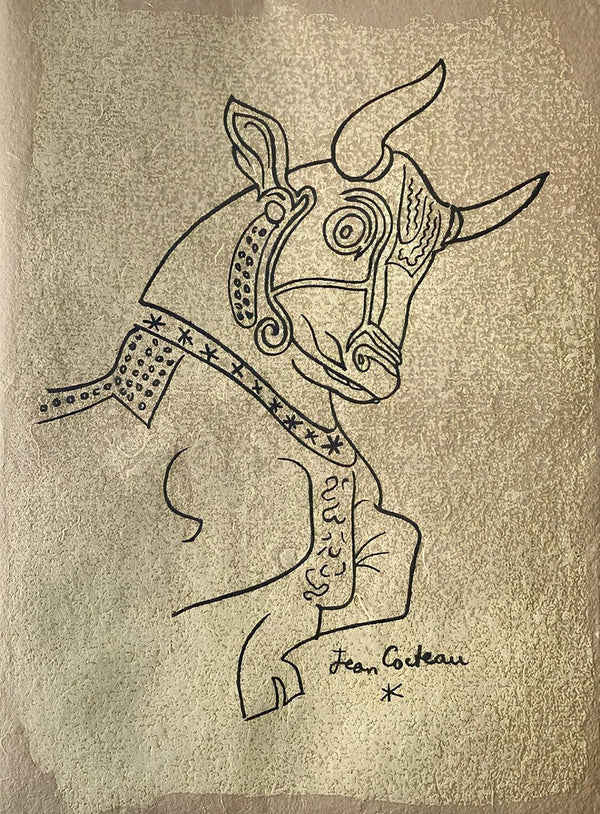 Jean Cocteau